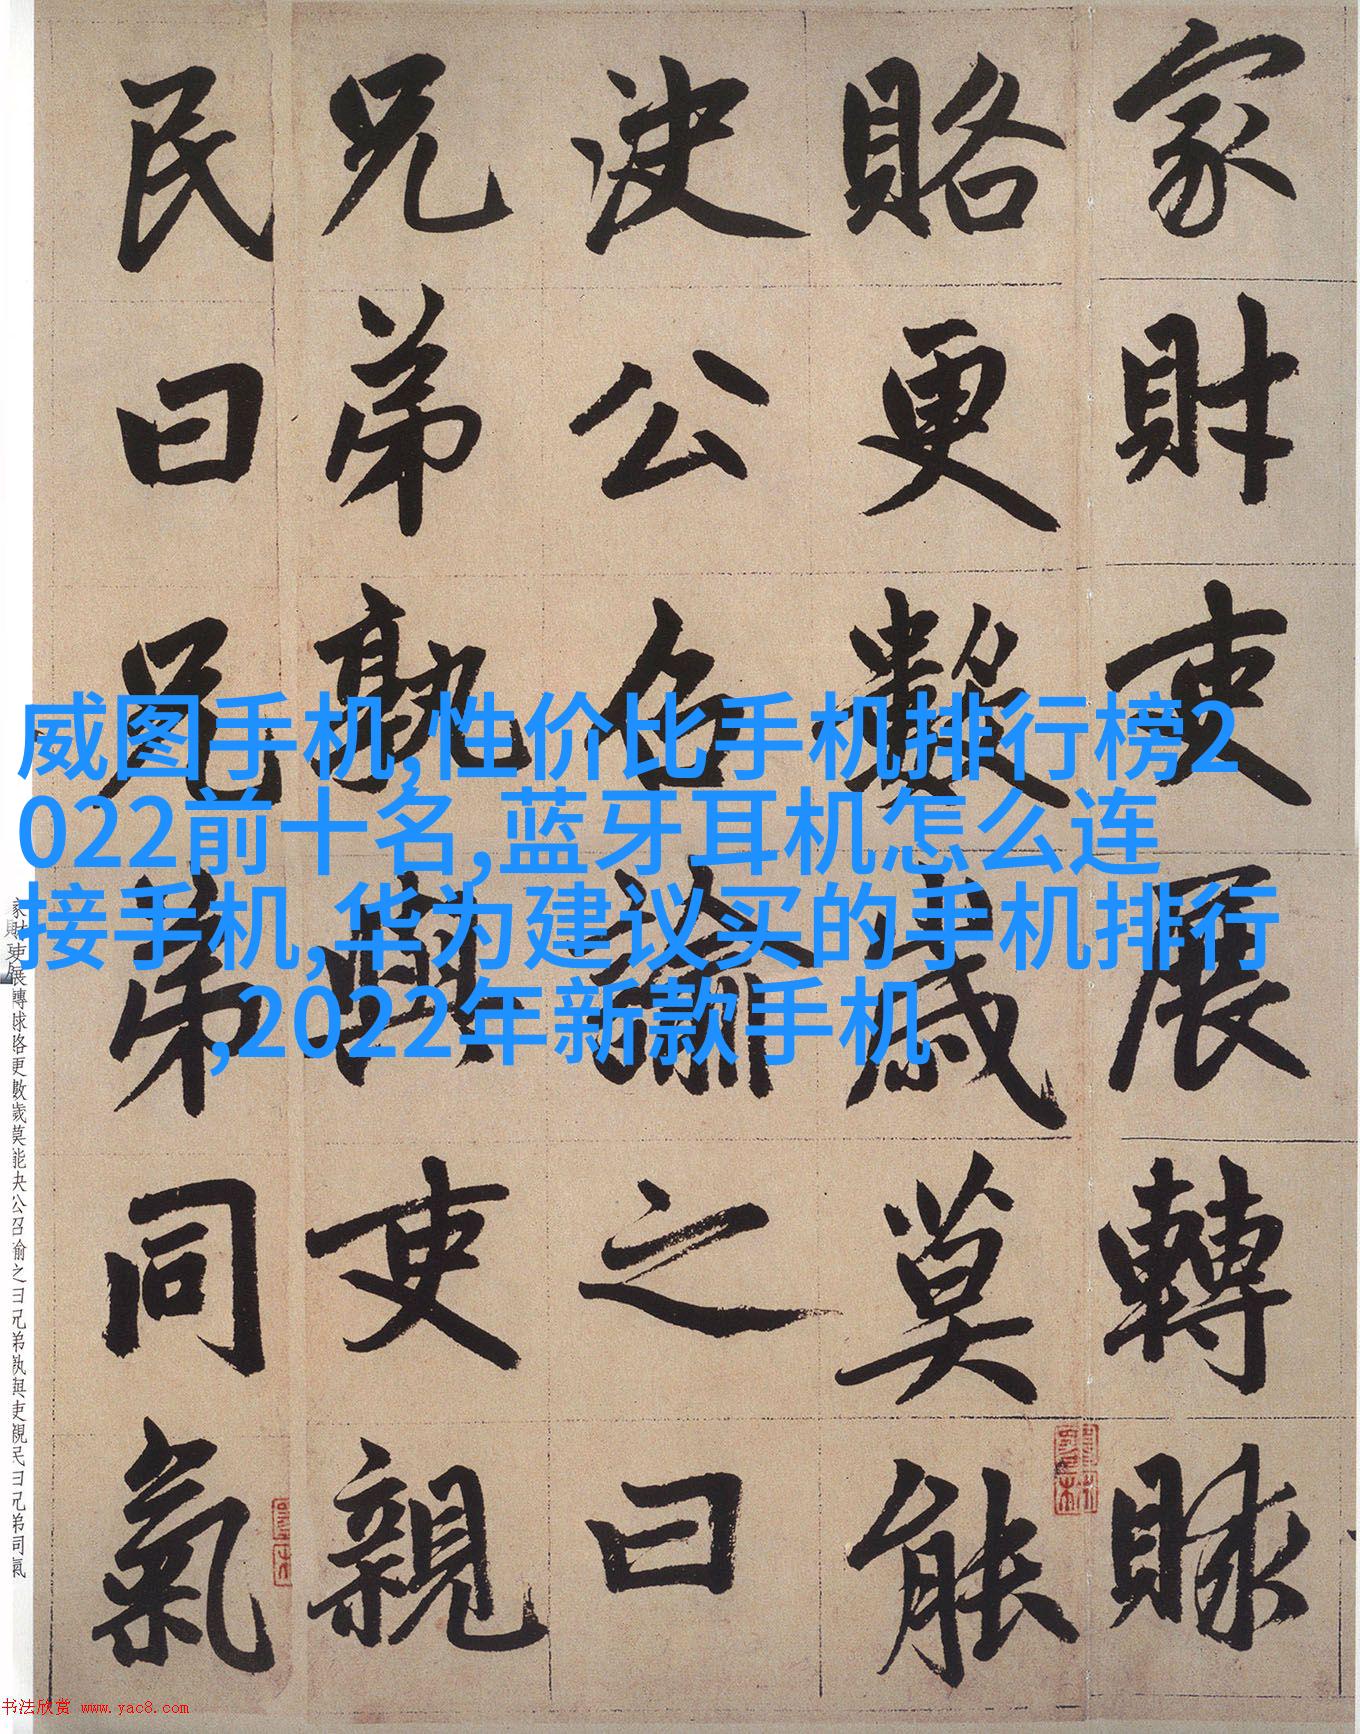 家財吏展轉賕
賂更數歲莫能
决公召諭之曰
兄弟孰與吏親
民曰兄弟同氣
威图手机,性价比手机排行榜2
022前十名,蓝牙耳机怎么连
接手机,华为建议买的手机排行
,2022年新款手机
家財吏展轉賕賂更數歲莫能决公召諭之曰兄弟孰與吏親民曰兄弟同氣
书法欣赏 www.yac8.com